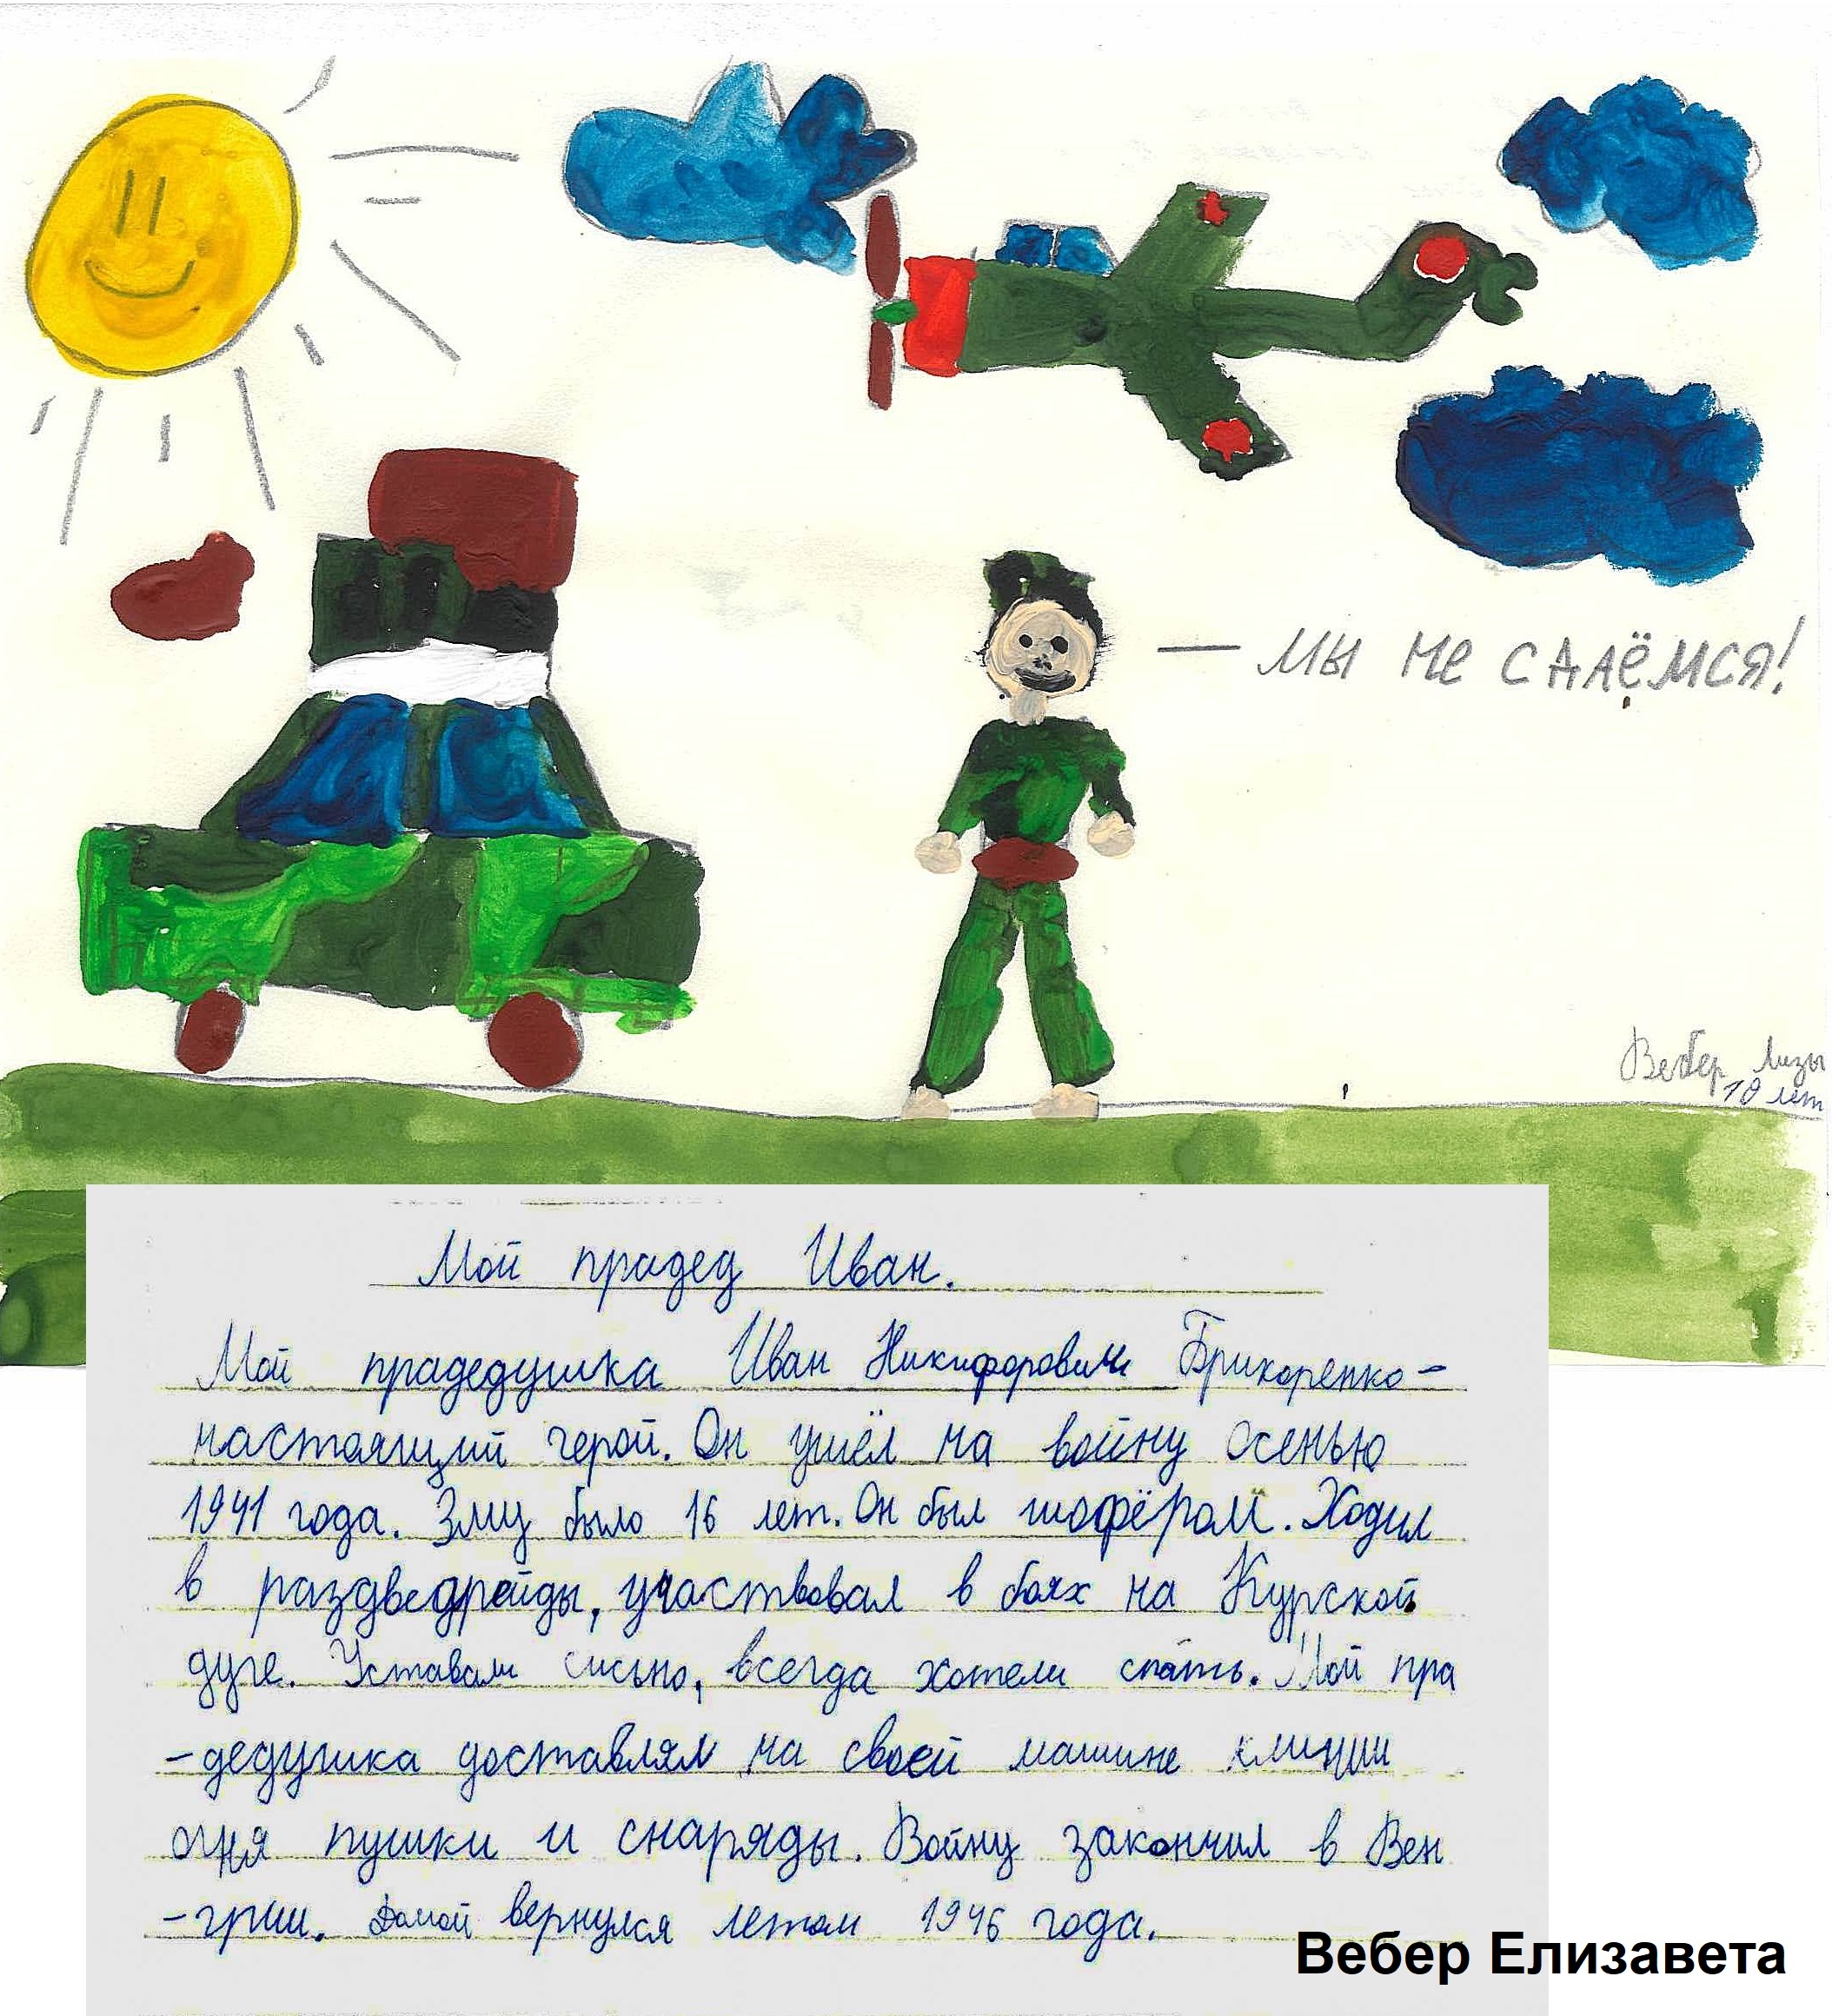 — Мы не сдаёмся!
Вебер Лизы
10 лет
Мой прадед Иван.
Мой прадедушка Иван Никифорович Брихоренко -
настоящий герой. Он ушёл на войну осенью
1941 года. Эму было 16 лет. Он был шофёром. Ходил
в раздведрейды, участвовал в боях на Курской
дуге. Уставали сисьно, всегда хотели спать. Мой пра
-дедушка доставлял на своей машине к линии
огня пушки и снаряды. Войну закончил в Вен
-грии. Домой вернулся летом 1946 года.
Вебер Елизавета